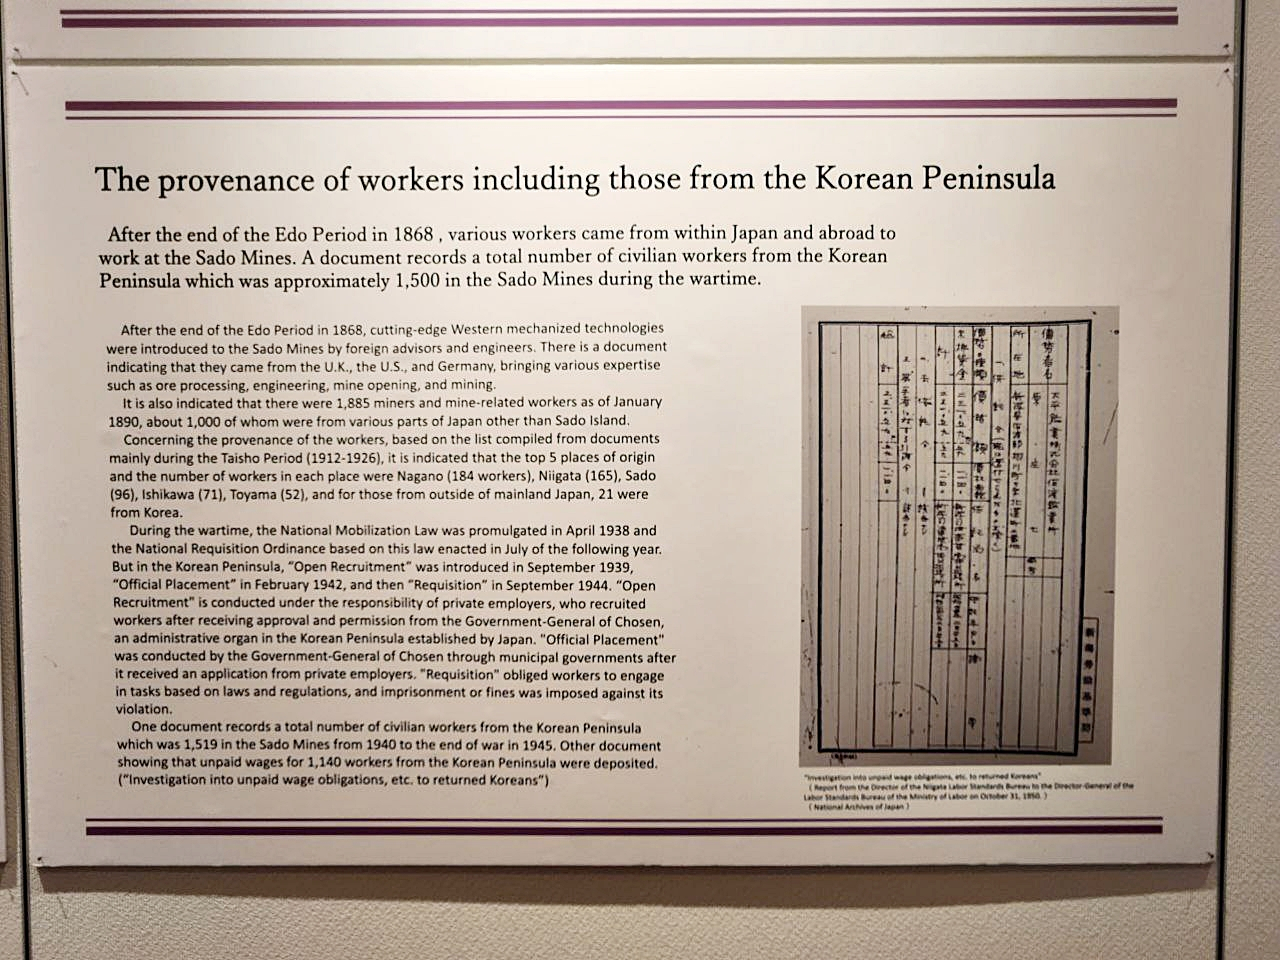 The provenance of workers including those from the Korean Peninsula
After the end of the Edo Period in 1868 , various workers came from within Japan and abroad to
work at the Sado Mines. A document records a total number of civilian workers from the Korean
Peninsula which was approximately 1,500 in the Sado Mines during the wartime.
After the end of the Edo Period in 1868, cutting-edge Western mechanized technologies
were introduced to the Sado Mines by foreign advisors and engineers. There is a document
indicating that they came from the U.K., the U.S., and Germany, bringing various expertise
such as ore processing, engineering, mine opening, and mining.
It is also indicated that there were 1,885 miners and mine-related workers as of January
1890, about 1,000 of whom were from various parts of Japan other than Sado Island.
Concerning the provenance of the workers, based on the list compiled from documents
mainly during the Taisho Period (1912-1926), it is indicated that the top 5 places of origin
and the number of workers in each place were Nagano (184 workers), Niigata (165), Sado
(96), Ishikawa (71), Toyama (52), and for those from outside of mainland Japan, 21 were
from Korea.
During the wartime, the National Mobilization Law was promulgated in April 1938 and
the National Requisition Ordinance based on this law enacted in July of the following year.
But in the Korean Peninsula, "Open Recruitment" was introduced in September 1939,
"Official Placement" in February 1942, and then "Requisition" in September 1944. "Open
Recruitment" is conducted under the responsibility of private employers, who recruited
workers after receiving approval and permission from the Government-General of Chosen,
an administrative organ in the Korean Peninsula established by Japan. "Official Placement"
was conducted by the Government-General of Chosen through municipal governments after
it received an application from private employers. "Requisition" obliged workers to engage
in tasks based on laws and regulations, and imprisonment or fines was imposed against its
violation.
One document records a total number of civilian workers from the Korean Peninsula
which was 1,519 in the Sado Mines from 1940 to the end of war in 1945. Other document
showing that unpaid wages for 1,140 workers from the Korean Peninsula were deposited.
("Investigation into unpaid wage obligations, etc. to returned Koreans")
債務者名
太平鉱業株式会社佐渡鉱業所
所在地
新潟労働基準局
"Investigation into unpaid wage obligations, etc. to returned Koreans"
( Report from the Director of the Niigata Labor Standards Bureau to the Director-General of the
Labor Standards Bureau of the Ministry of Labor on October 31, 1950. )
( National Archives of Japan )